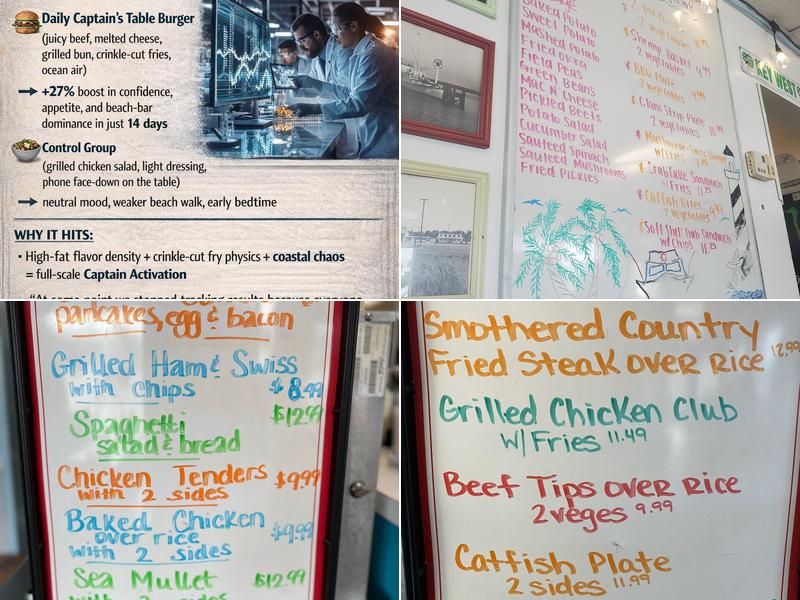 Daily Captain's Table Burger
(juicy beef, melted cheese,
grilled bun, crinkle-cut fries,
ocean air)
+27% boost in confidence,
appetite, and beach-bar
dominance in just 14 days
Control Group
(grilled chicken salad, light dressing,
phone face-down on the table)
neutral mood, weaker beach walk, early bedtime
WHY IT HITS:
• High-fat flavor density + crinkle-cut fry physics + coastal chaos
= full-scale Captain Activation
"At some point we stopped tracking results because everyone
Baked Potato
Sweet Potato
Mashed Potato
Fried Okra
Field Peas
Green Beans
Mac N' Cheese
Pickled Beets
Potato Salad
Cucumber Salad
Sauteed Spinach
Sauteed Mushrooms
Fried Pickles
2 vegetables
Shrimp Basket
2 vegetables 9.99
BBQ Plate
2 vegetables 9.99
Clam Strip Plate
2 vegetables 10.99
Mushroom Swiss
Crab Cake Sandwich
w/ Fries 11.25
Catfish Bites
2 vegetables 9.99
Soft Shell Crab Sandwich
w/ Chips 11.25
KEY WEST
pancakes, egg & bacon
Grilled Ham & Swiss
with chips $8.49
Spaghetti $12.99
salad & bread
Chicken Tenders $9.99
with 2 sides
Baked Chicken
over rice $9.99
with 2 sides
Sea Mullet $12.99
with 2 sides
Smothered Country
Fried Steak over Rice 12.99
Grilled Chicken Club
w/ Fries 11.49
Beef Tips over Rice
2 veges 9.99
Catfish Plate
2 sides 11.99